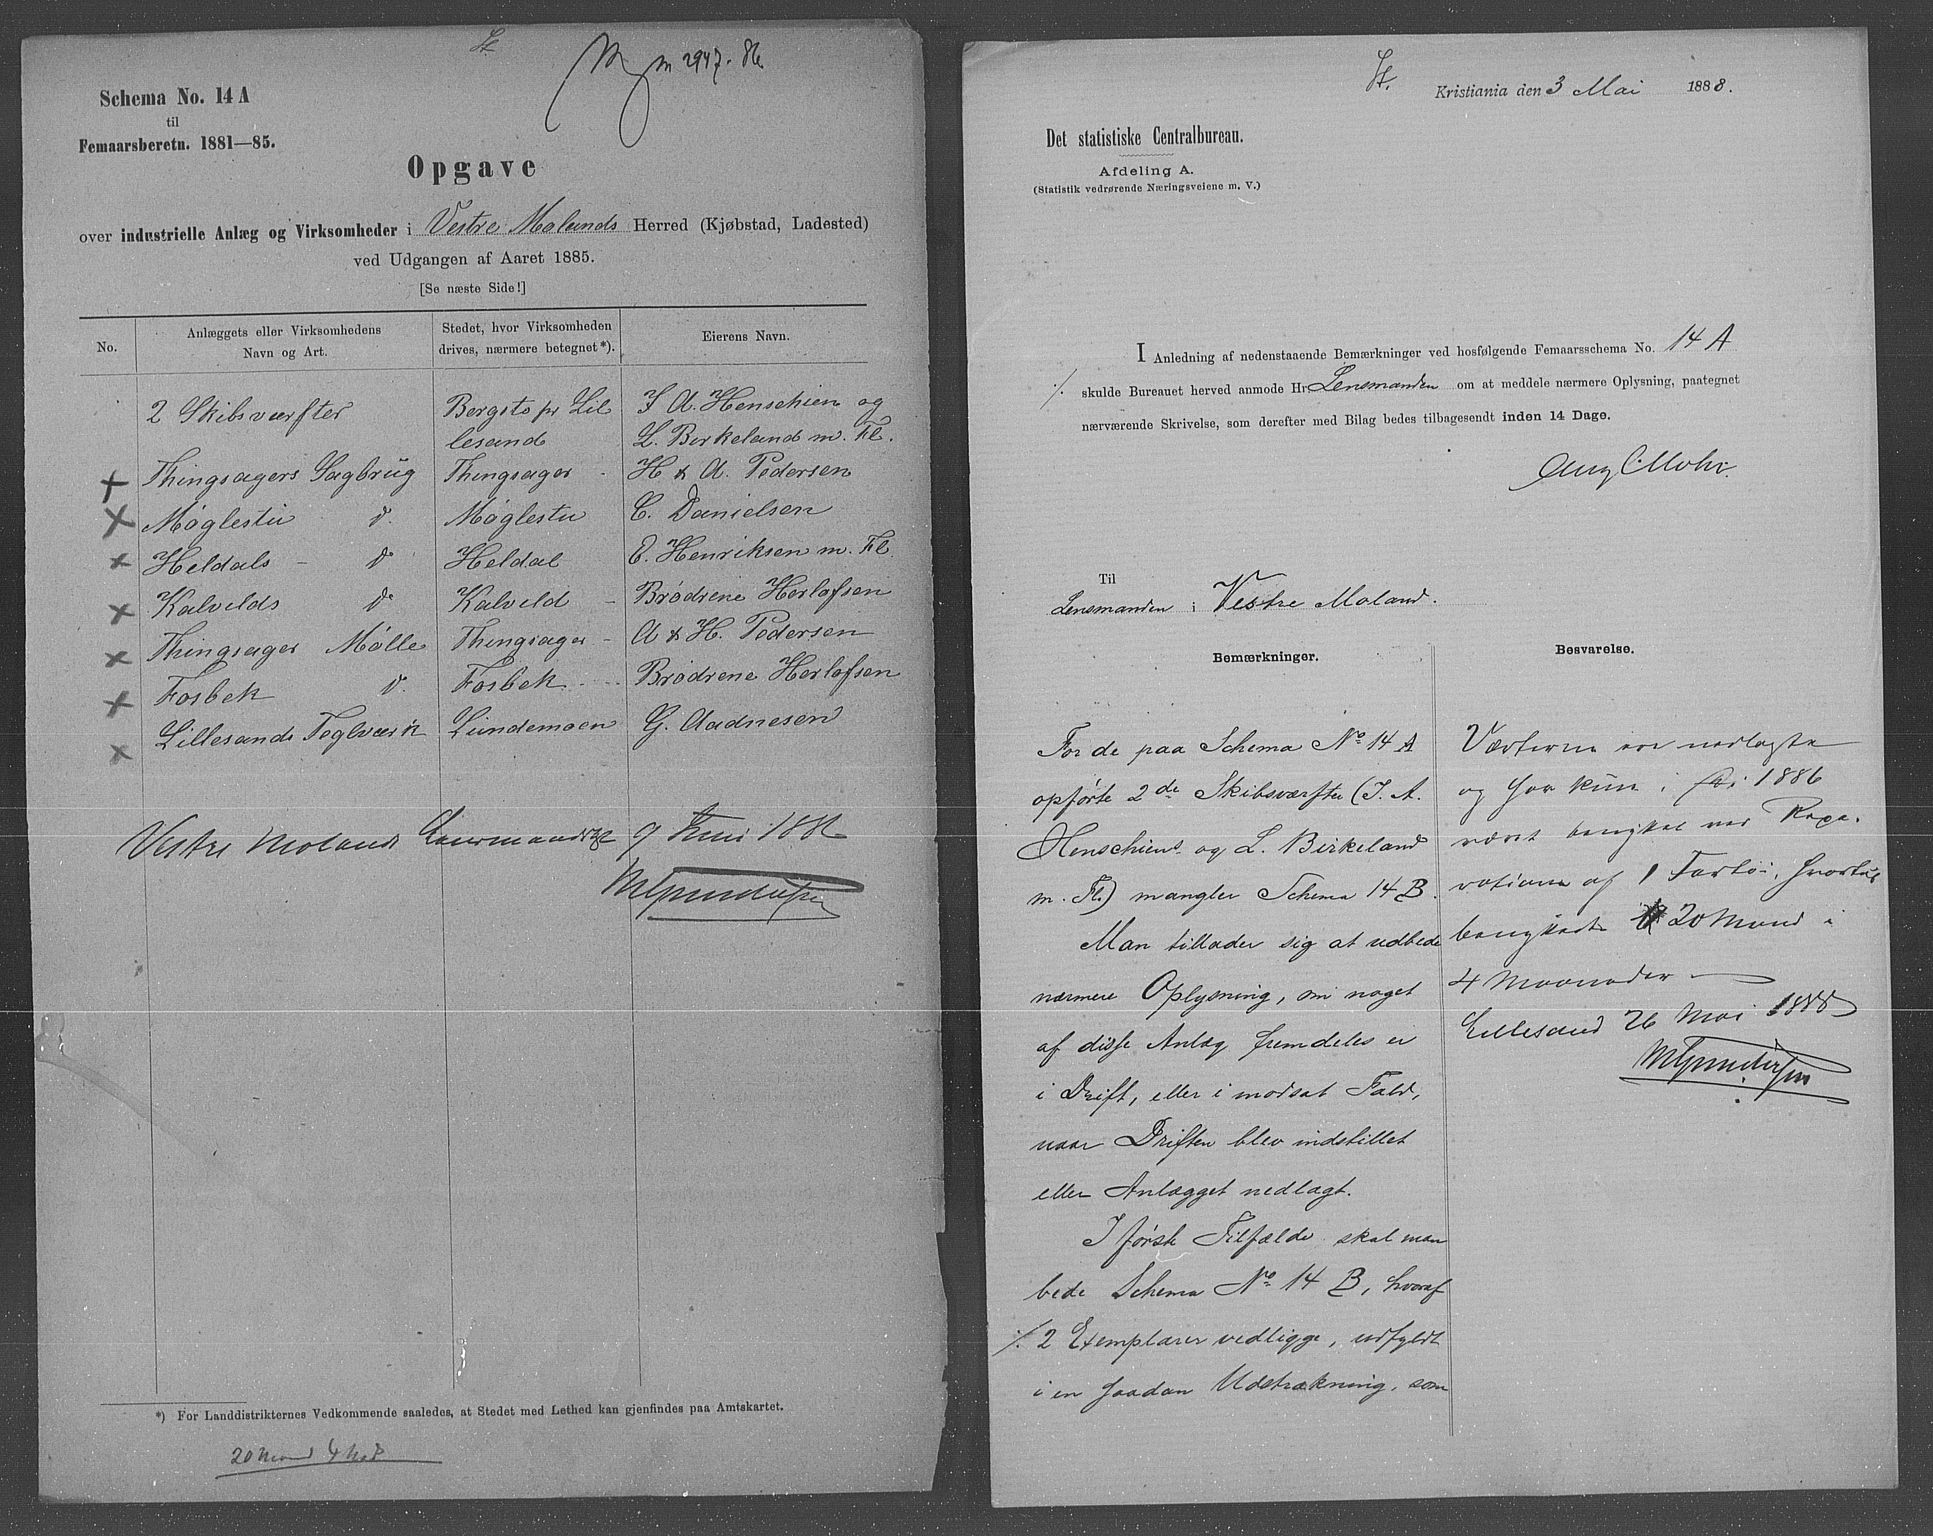 St.
2947. 86
Schema No. 14 A
til
Femaarsberetn. 1881—85.
Opgave
over industrielle Anlæg og Virksomheder i Vestre Molands Herred (Kjøbstad, Ladested)
ved Udgangen af Aaret 1885.
[Se næste Side!]
No. Anlæggets eller Virksomhedens Navn og Art. Stedet, hvor Virksomheden drives, nærmere betegnet*). Eierens Navn.
2 Skibsværfter Bergsto pr Lil J A. Henschien og
lesand L. Birkeland m. Fl.
Thingsagers Sagbrug Thingsager H & A. Pedersen
Møglestu d. Møglestu C. Danielsen
Heldals - d Heldal E. Henriksen m. Fl.
Kalvilds d Kalvild Brødrene Herlofsen
Thingsager Mølle Thingsager A & H. Pedersen
Fosbek d. Fosbek Brødrene Herlofsen
Lillesands Teglværk Lundemoen G. Aadnesen
Vestre Molands 9 Juni 1886
*) For Landdistrikternes Vedkommende saaledes, at Stedet med Lethed kan gjenfindes paa Amtskartet.
20 Mand 4
St. Kristiania den 3 Mai 1888.
Det statistiske Centralbureau.
Afdeling A.
(Statistik vedrørende Næringsveiene m. V.)
I Anledning af nedenstaaende Bemærkninger ved hosfølgende Femaarsschema No. 14 A
./. skulde Bureauet herved anmode Hr. Lensmanden om at meddele nærmere Oplysning, paategnet
nærværende Skrivelse, som derefter med Bilag bedes tilbagesendt inden 14 Dage.
Aug Mohr.
Til
Lensmanden i Vestre Moland.
Bemærkninger.
For de paa Schema No 14 A
opførte 2de Skibsværfter (J. A.
Henschiens og L. Birkeland
m. Fl.) mangler Schema 14 B.
Man tillader sig at udbede
nærmere Oplysning, om noget
af disse Anlæg fremdeles er
i Drift, eller i modsat Fald,
naar Driften blev indstillet
eller Anlægget nedlagt.
I første Tilfælde skal man
bede Schema No 14 B, hvoraf
./. 2 Exemplarer vedligge, udfyldt
i en saadan Udstrækning, som
Besvarelse.
Værferne ere nedlagte
og har kun i 1886
været benyttet ved Repa-
rationen af 1 Fartøi, hvortil
benyttedes 20 Mand i
4 Maaneder
Lillesand 26 Mai 1888